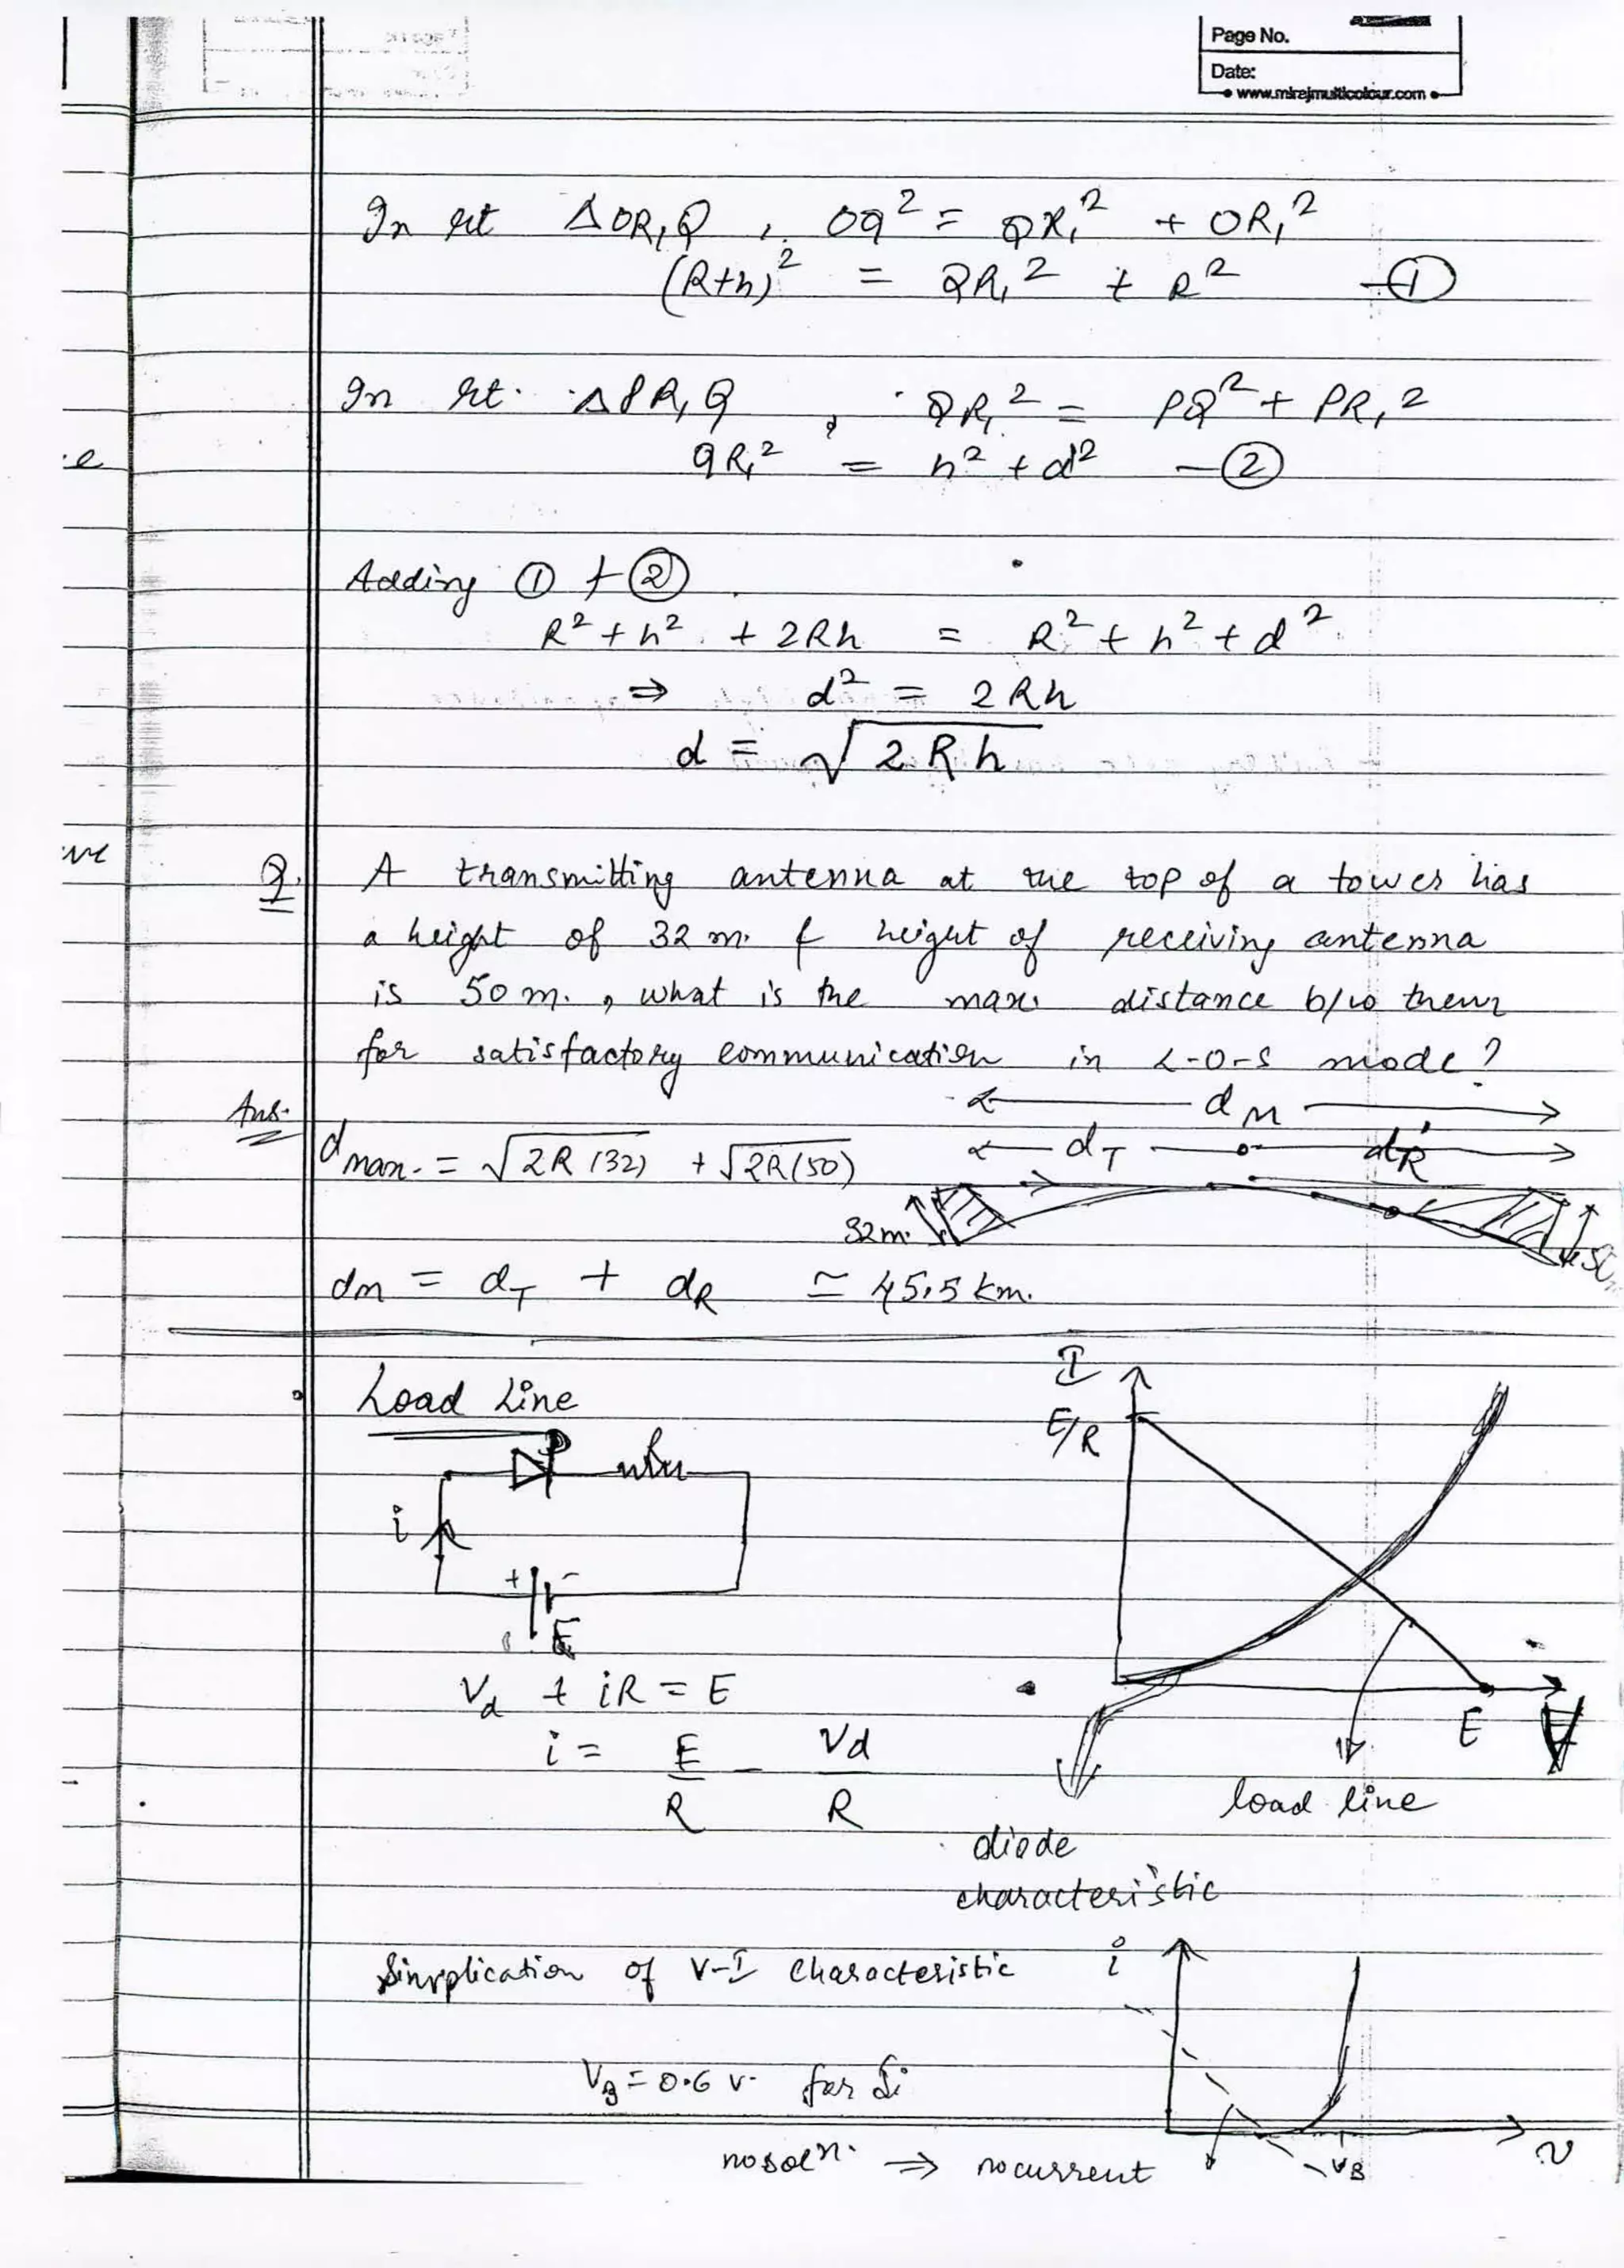 Page No.
Date:
www.mirajmulticolour.com
In rt ΔOR₁Q , OQ² = QR₁² + OR₁²
(R+h)² = QR₁² + R² —①
In rt. ΔPR₁Q , QR₁² = PQ² + PR₁²
QR₁² = h² + d² —②
e
Adding ① + ②
R² + h² + 2Rh = R² + h² + d²
⇒ d² = 2Rh
d = √2Rh
ve
Q. A transmitting antenna at the top of a tower has
a height of 32 m. & height of receiving antenna
is 50 m. , what is the max. distance b/w them
for satisfactory communication in L-O-S mode?
d_M
Ans. d_max. = √2R(32) + √2R(50)
d_T d_R
32m.
d_M = d_T + d_R ≃ 45.5 km.
Load Line
I
E/R
R
i
+ -
E
V_d + iR = E
E V
i = E/R - V_d/R
load line
diode
characteristic
Simplication of V-I characteristic
i
V_B = 0.6 v. for Si
no solⁿ. ⇒ no current
V_B
v